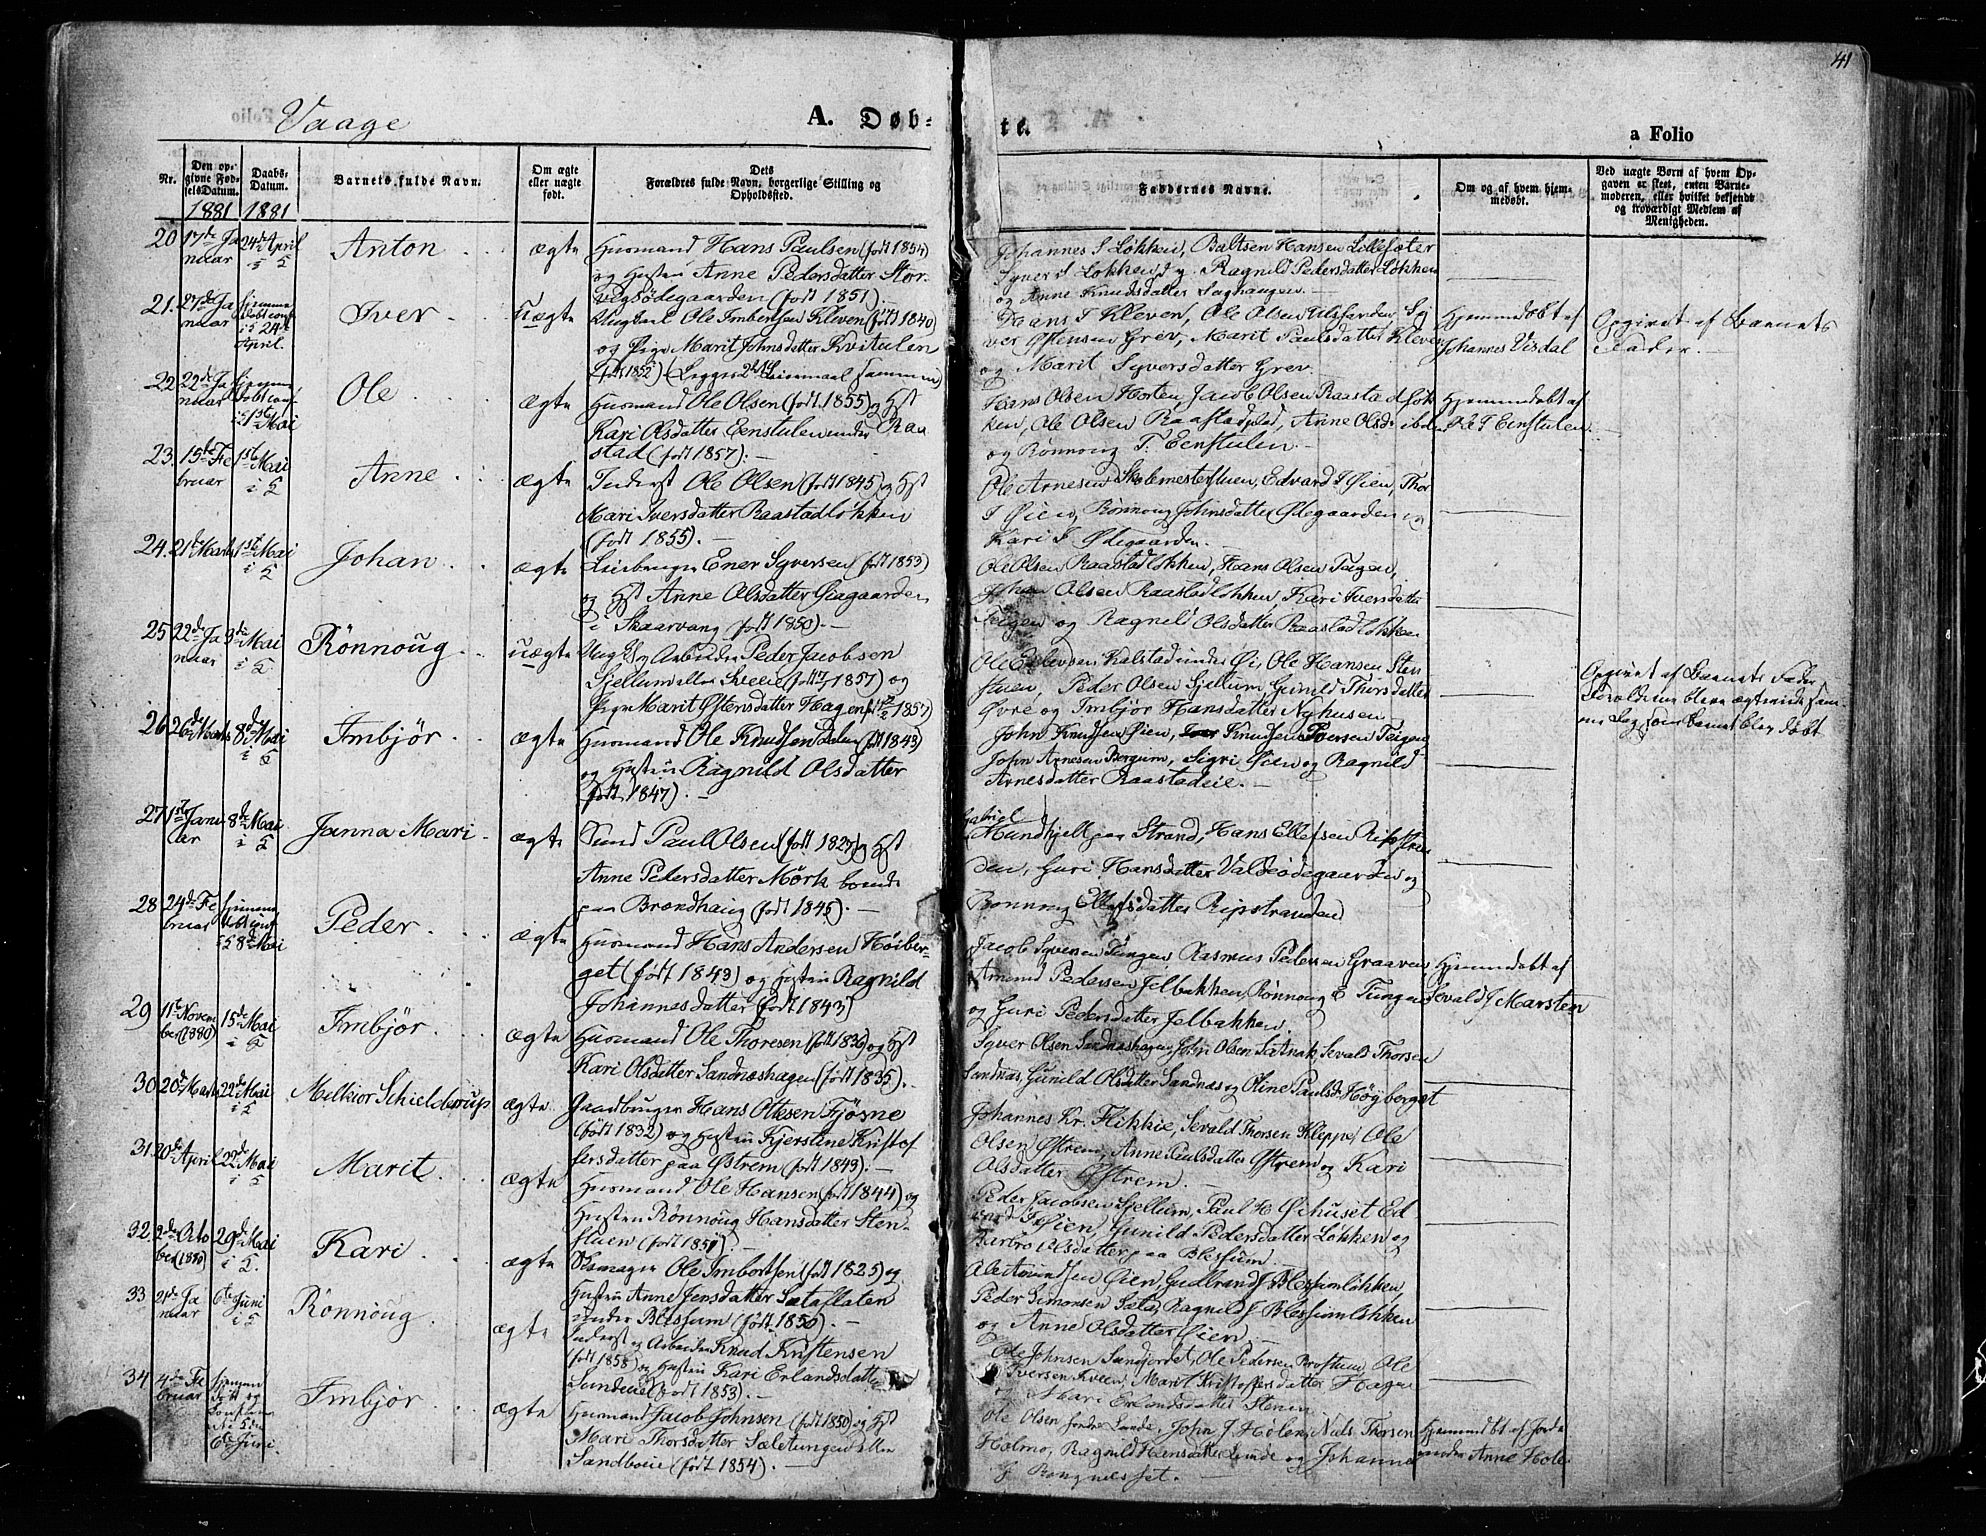 41
Vaage
A. Døb-
te.
a Folio
Nr.
Den op-
givne Fød-
selsDatum.
Daabs-
Datum.
Barnets fulde Navn.
Om ægte
eller uægte
født.
Dets
Forældres fulde Navn, borgerlige Stilling og
Opholdssted.
Faddernes Navne.
Om og af hvem hjem-
medøbt.
Ved uægte Børn af hvem Op-
gaven er skeet, enten Barne-
moderen, eller hvilket bekjendt
og troværdigt Medlem af
Menigheden.
1881 1881
20 17de Ja
nuar
24de April
i 5
Anton
ægte
Husmand Hans Paulsen (født 1854)
og Hustru Anne Pedersdatter Stor-
vegsødegaarden (født 1851).
Johannes S Løkken, Baltsen Hansen Lillesæter
Syver S. Løkken, Ragnild Pedersdatter Løkken
og Anne Knudsdatter Saghaugen.
21. 27de Ja
nuar
Hjemme
døbt conf
i 5 24de
April.
Iver
uægte
Ungkarl Ole Imbertsen Kleven (født 1840)
og Pige Marit Johnsdatter Kvitulen
(født 1852) (Begges 2det Leiermaal sammen)
Hans T Kleven, Ole Olsen Ulfsanden, Sy
ver Østensen Grev, Marit Paulsdatter Kleven
og Marit Syversdatter Grev.
Hjemmedøbt af
Johannes Visdal
Opgivet af Barnets
Fader.
22 22de Ja
nuar
Hjemme
døbt conf
i 5 1ste
Mai
Ole
ægte
Husmand Ole Olsen (født 1855) og Hst
Kari Olsdatter Eenstulen under Raa
stad (født 1857).
Hans Olsen Horten, Jacob Olsen Raastadløk-
ken, Ole Olsen Raastadplad, Anne Olsd. ibdn
og Rønnoug T. Eenstulen.
Hjemmedøbt af
T Eenstulen
23. 15de Fe
bruar
1ste Mai
i 5
Anne
ægte
Inderst Ole Olsen (født 1845) og Hst
Mari Iversdatter Raastadløkken
(født 1855).
Ole Arnesen Skolemesterstuen, Edvard T Øien, Thor
T Øien, Rønnoug Johnsdatter Ødegaarden og
Kari S Ødegaarden.
24. 21de Marts 1ste Mai
i 5
Johan
ægte
Leilbruger Ener Syversen (født 1853)
og Hst Anne Olsdatter Øiagaarden
i Skaarvang (født 1850).
Ole Olsen Raastadløkken, Hans Olsen Teigen,
Johan Olsen Raastadløkken, Kari Iversdatter
Teigen og Ragnild Olsdatter Raastadløkken
25 22de Ja
nuar
3de Mai
i 5.
Rønnoug
uægte
Ungk og Arbeider Peder Jacobsen
Sjellum eller Sveen (født 1857) og
Pige Marit Østensdatter Hagen (født 1857)
Ole Kalstad under Øi, Ole Hansen Sten
stuen, Peder Olsen Sjellum, Gunild Thorsdatter
Øvre og Imbjør Hansdatter Nyhusen
Opgivet af Barnets Fader
Forældrene bleve ægteviede sam
me Dag som Barnet blev døbt
26 26de Marts 8de Mai
i 5
Imbjør
ægte
Husmand Ole Knudsen Dalen (født 1843)
og Hustru Ragnild Olsdatter
(født 1847).
John Knudsen Øien, Knudsen Iversen Teigen
John Arnesen Bergum, Sigri Øien og Ragnild
Arnesdatter Raastadeie.
27 1ste Janu
ar
8de Mai
i 5
Janna Mari
ægte
Smed Paul Olsen (født 1829) og Hst
Anne Pedersdatter Mørk boende
paa Brændhaug (født 1845).
Gabriel
Mundhjelt paa Strand, Hans Ellefsen Ripstran
den, Guri Hansdatter Valdeødegaarden og
Rønnoug Ellefsdatter Ripstranden
28 24de Fe
bruar
Hjemme
døbt conf
i 5 8de Mai
Peder
ægte
Husmand Hans Andersen Høiber-
get (født 1843) og Hustru Ragnild
Johannesdatter (født 1843)
Jacob Syversen Tungen, Rasmus Pedersen Graaven
Amund Pedersen Jelbakken, Rønnoug E Tungen
og Guri Pedersdatter Jelbakken.
Hjemmedøbt af
Sevald J Marsten
29 11te Novem
ber (1880)
15de Mai
i 5
Imbjør
ægte
Husmand Ole Thoresen (født 1836) og Hst
Kari Olsdatter Sandnæshagen (født 1835).
Syver Olsen Sandnæshagen, John Olsen Sætnak, Sevald Thorsen
Sandnæs, Gunild Olsdatter Sandnæs og Oline Paulsd. Høgberget
30 20de Marts 22de Mai
i 5
Melkior Schielderup
ægte
Gaardbruger Hans Ottesen Fjøsne
(født 1832) og Hustru Kjerstine Kristof
fersdatter paa Østrem (født 1843).
Johannes Kr. Flikkie, Sevald Thorsen Kleppe, Ole
Olsen Østrem, Anne Paulsdatter Østrem og Kari
Olsdatter Østrem.
31. 20de April 22de Mai
i 5
Marit
ægte
Husmand Ole Hansen (født 1844) og
Hustru Rønnoug Hansdatter Sten-
stuen (født 1851).
Peder Jacobsen Sjellum, Paul H Øihuset, Ed
vard T Øien, Gunild Pedersdatter Løkken og
Barbro Olsdatter paa Blessum.
32. 2de Octo
ber (1880)
29de Mai
i 5.
Kari
ægte
Skomager Ole Imbertsen (født 1825) og
Hustru Anne Jensdatter Sætaflaten
under Blessum (født 1850).
Ole Amundsen Øien, Gudbrand J Blessumløkken,
Peder Simonsen Sæta, Ragnild J Blessumløkken
og Anne Olsdatter Øien.
33 21de Ja
nuar
6te Juni
i 5
Rønnoug
ægte
Inderst og Arbeider Knud Kristensen
(født 1858) og Hustru Kari Erlandsdatter
Sundeie (født 1853).
Ole Johnsen Sandjordet, Ole Pedersen Brostuen, Ole
Iversen Sveen, Marit Kristoffersdatter Hagen
og Mari Erlandsdatter Stenen.
34 4de Fe
bruar
Hjemme
døbt og
6te Juni.
Imbjør
ægte
Husmand Jacob Johnsen (født 1850) og Hst
Mari Thorsdatter Sæletungen eller
Sandboeie (født 1854).
Ole Olsen Søndre Lunde, John J Holen, Niels Thorsen
Holmo, Ragnild Hansdatter Lunde og Johanne
J Rongnesset.
Hjemmedøbt af Jorde
moder Anne Hole